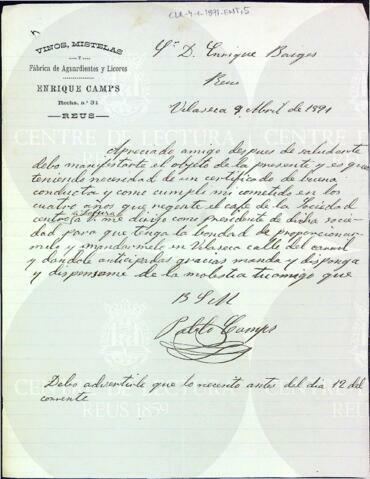 CLR-4-1-1891-ENT, 5
VINOS, MISTELAS
Y
Fábrica de Aguardientes y Licores
ENRIQUE CAMPS
Rocha, n.º 31
REUS
Sr. D. Enrique Borges
Reus
Vilaseca 9 Abril de 1891
Apreciado amigo despues de saludarte
debo manifestarte el objeto de la presente y es que
teniendo necesidad de un certificado de buena
conducta y como cumpli mi cometido en los
cuatro años que regente el cafe de la Sociedad
centro me dirijo como presidente de dicha socie
dad para que tenga la bondad de proporcionar
melo y mandarmelo en Vilaseca calle del
y dandole anticipadas gracias manda y disponga
y dispensome de la molestia tu amigo que
B S M
Pablo Camps
Debo advertirle que lo necesito antes del dia 12 del
corriente
CENTRE DE LECTURA
REUS 1859